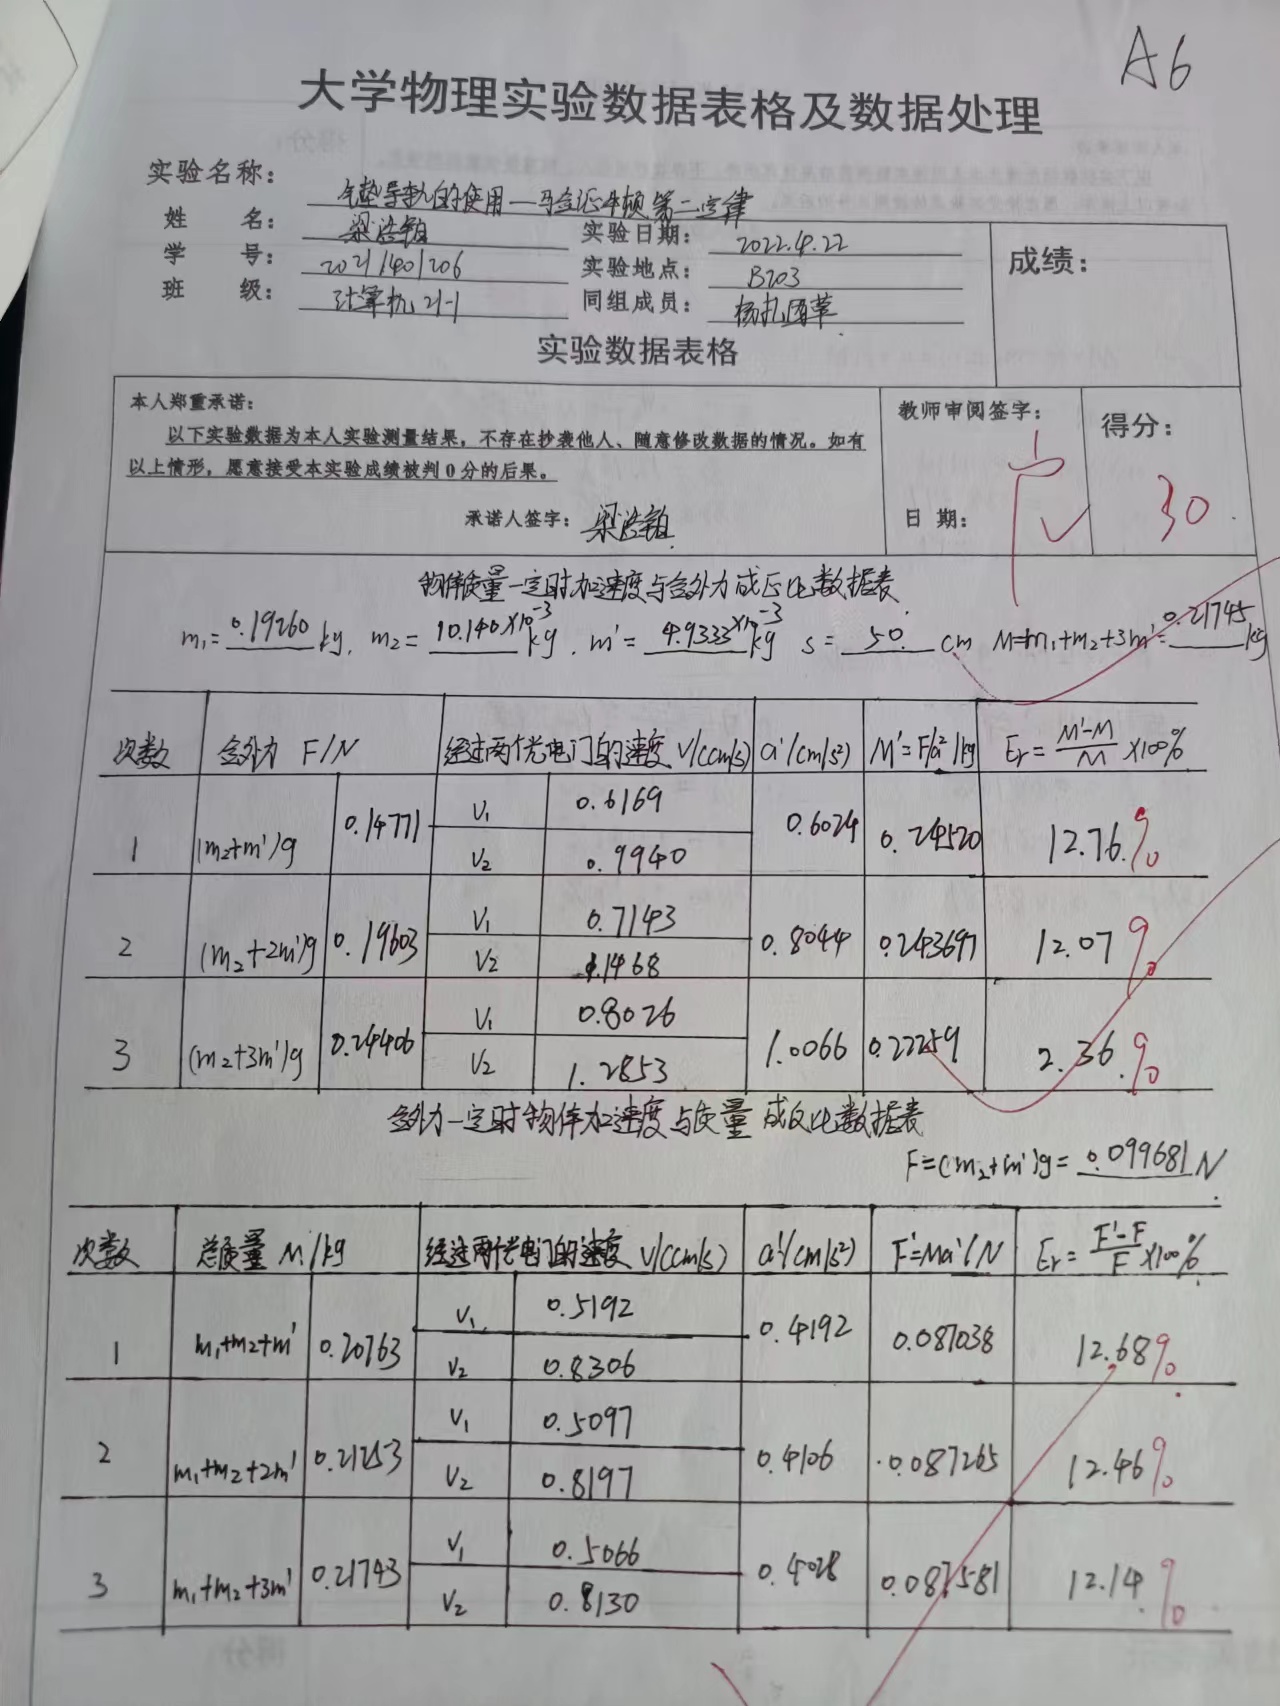 A6
大学物理实验数据表格及数据处理
实验名称： 气垫导轨的使用—验证牛顿第二定律
姓 名： 梁浩 实验日期： 2022.4.22
学 号： 202140206 实验地点： B203
班 级： 计算机21-1 同组成员：
成绩：
实验数据表格
本人郑重承诺：
以下实验数据为本人实验测量结果，不存在抄袭他人、随意修改数据的情况。如有
以上情形，愿意接受本实验成绩被判0分的后果。
承诺人签字： 梁浩
教师审阅签字：
日 期：
得分：
30
物体质量一定时加速度与合外力成正比数据表
m₁= 0.19260 kg, m₂= 10.140×10⁻³ kg, m'= 4.9333×10⁻³ kg s= 50. cm M=m₁+m₂+3m'= 0.21745 kg
次数 合外力 F/N 经过两个光电门的速度 V/(cm/s) a'/(cm/s²) M'=F/a'/kg Er=(M'-M)/M×100%
1 (m₂+m')g 0.14771 V₁ 0.6169 0.6024 0.24520 12.76%
V₂ 0.9940
2 (m₂+2m')g 0.19603 V₁ 0.7143 0.8044 0.243697 12.07%
V₂ 1.1468
3 (m₂+3m')g 0.24406 V₁ 0.8026 1.0066 0.22259 2.36%
V₂ 1.2853
合外力一定时物体加速度与质量成反比数据表
F=(m₂+m')g= 0.099681 N
次数 总质量 M/kg 经过两个光电门的速度 V/(cm/s) a'/(cm/s²) F'=Ma'/N Er=(F'-F)/F×100%
1 m₁+m₂+m' 0.20763 V₁ 0.5192 0.4192 0.087038 12.68%
V₂ 0.8306
2 m₁+m₂+2m' 0.21253 V₁ 0.5097 0.4106 0.087265 12.46%
V₂ 0.8197
3 m₁+m₂+3m' 0.21743 V₁ 0.5066 0.4028 0.087581 12.14%
V₂ 0.8130